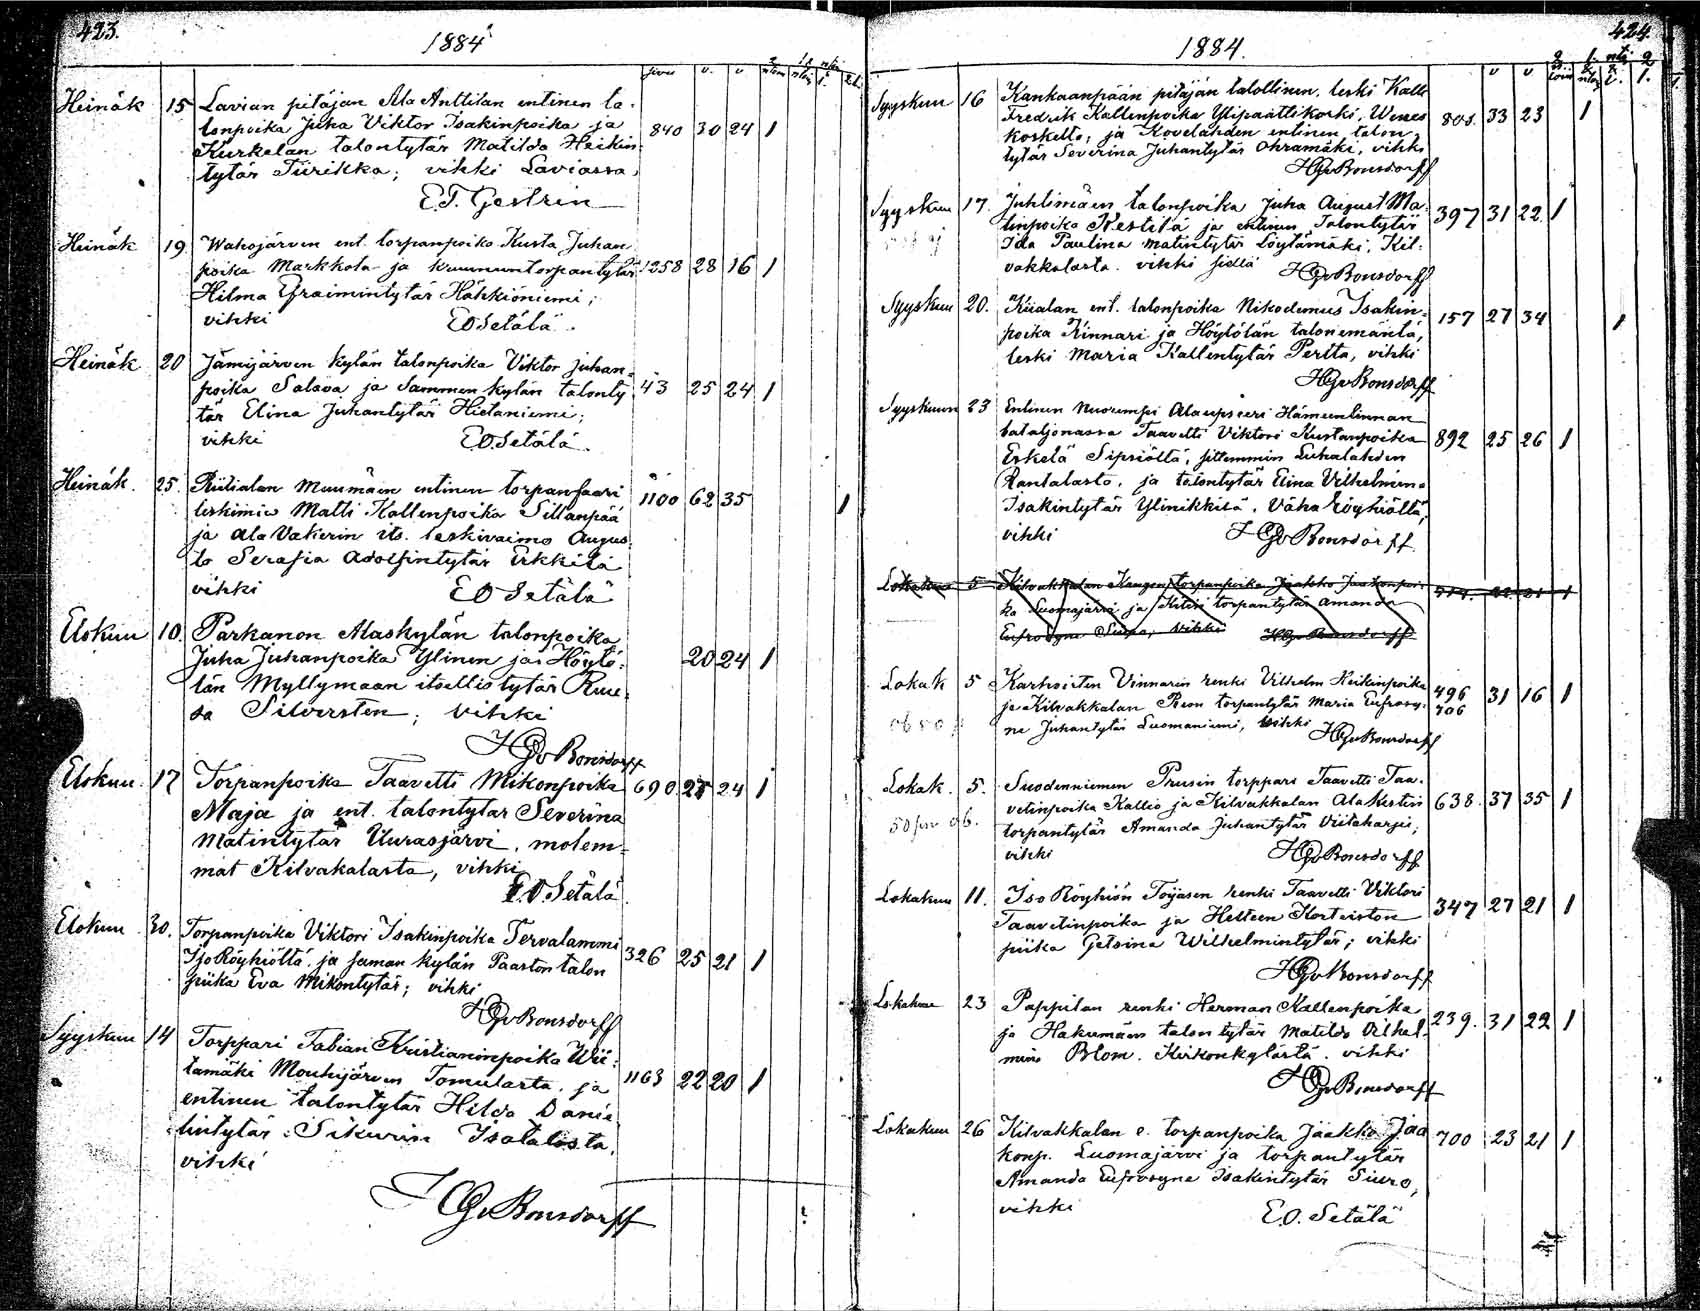 423.
1884
sivu v. v
Heinäk 15 Lavian pitäjän Ala Anttilan entinen ta-
lonpoika Juha Viktor Isakinpoika ja 840 30 24 1
Kurkelan talontytär Matilda Heikin
tytär Tiirikka; vihki Laviassa
E.T. Gestrin
Heinäk 19 Wahojärven ent. torpanpoika Kusta Juhan
poika Markkola ja kruununtorpantytär 1258 28 16 1
Hilma Efraimintytär Häkkiöniemi;
vihki E O Setälä.
Heinäk 20 Jämijärven kylän talonpoika Viktor Juhan-
poika Salava ja Sammen kylän talonty 43 25 24 1
tär Elina Juhantytär Hietaniemi;
vihki E.O. Setälä.
Heinäk. 25. Riitialan Muumäen entinen torpanfaari
leskimies Matti Kallenpoika Sillanpää 1100 62 35 1
ja Ala Vakerin its. leskivaimo Augus-
ta Serafia Adolfintytär Erkkilä
vihki E O Setälä
Elokuu 10. Parkanon Alaskylän talonpoika
Juha Juhanpoika Ylinen ja Höytö- 20 24 1
län Myllymaan itsellistytär Ruu-
sa Silversten; vihki
HGvBonsdorff
Elokuu 17 Torpanpoika Taavetti Mikonpoika 690. 27 24 1
Maja ja ent. talontytär Severina
Matintytär Uurasjärvi, molem-
mat Kilvakalasta, vihki
E.O. Setälä
Elokuu 30. Torpanpoika Viktori Isakinpoika Tervalammi
Iso Röyhiöltä, ja saman kylän Paaston talon 326 25 21 1
piika Eva Mikontytär; vihki
HGvBonsdorff
Syyskuu 14 Torppari Fabian Kristianinpoika Wii-
tamäki Mouhijärven Tomulasta, ja 1163 22 20 1
entinen talontytär Hilda Danie
lintytär Sikurin Isotalosta,
vihki
HGvBonsdorff
424.
1884.
v v
Syyskuu 16 Kankaanpään pitäjän talollinen, leski Kalle
Fredrik Kallenpoika Ylipaattikoski, Wenes 805. 33 23 1
koskelta, ja Kovelahden entinen talon-
tytär Severina Juhantytär Ohramäki, vihki
HGvBonsdorff
Syyskuu 17. Juhtimäen talonpoika Juha August Ma-
tinpoika Kestilä ja entinen Talontytär 397 31 22 1
Ida Paulina Matintytär Löytämäki, Kil-
vakkalasta. vihki siellä HGvBonsdorff
Syyskuu 20. Kiialan ent. talonpoika Nikodemus Isakin-
poika Kinnari ja Höytölän talonemäntä, 157 27 34 1
leski Maria Kallentytär Pertta, vihki
HGvBonsdorff
Syyskuun 23 Entinen Nuorempi Alaupseeri Hämeenlinnan
bataljonassa Taavetti Viktori Kustanpoika 892 25 26 1
Erkelä Sipsiöltä, sittemmin Luhalahden
Rantalasta, ja talontytär Eina Vilhelmin-
Isakintytär Ylinikkilä, Vähä Röyhiöltä,
vihki HGvBonsdorff.
Lokakuu 5 Kilvakkalan Kangen torpanpoika Jaakko Jaakonpoi-
ka Luomajärvi ja Kitisi torpantytär Amanda
Eufrosyne Siuro, vihki HGvBonsdorff
Lokak 5 Karhoisten Vinnarin renki Vilhelm Heikinpoika 496 31 16 1
ja Kilvakkalan Peron torpantytär Maria Eufrosy- 706
ne Juhantytär Luomaniemi, vihki HGvBonsdorff
Lokak. 5. Suodenniemen Prusin torppari Taavetti Taa-
vetinpoika Kallio ja Kilvakkalan Ala Kestin 638. 37 35 1
torpantytär Amanda Juhantytär Viitaharju;
vihki HGvBonsdorff
Lokakuu 11. Iso Röyhiön Toijasen renki Taavetti Viktori
Taavetinpoika ja Helteen Korteiston 347 27 21 1
piika Getsina Wilhelmintytär; vihki
HGvBonsdorff
Lokakuu 23 Pappilan renki Herman Kallenpoika
ja Hakumäen talon tytär Matilda Vilhel- 239. 31 22 1
mina Blom. Kirkonkylästä. vihki
HGvBonsdorff
Lokakuu 26 Kilvakkalan e. torpanpoika Jaakko Jaa 700 23 21 1
konp. Luomajärvi ja torpantytär
Amanda Eufrosyne Isakintytär Siuro,
vihki E.O. Setälä